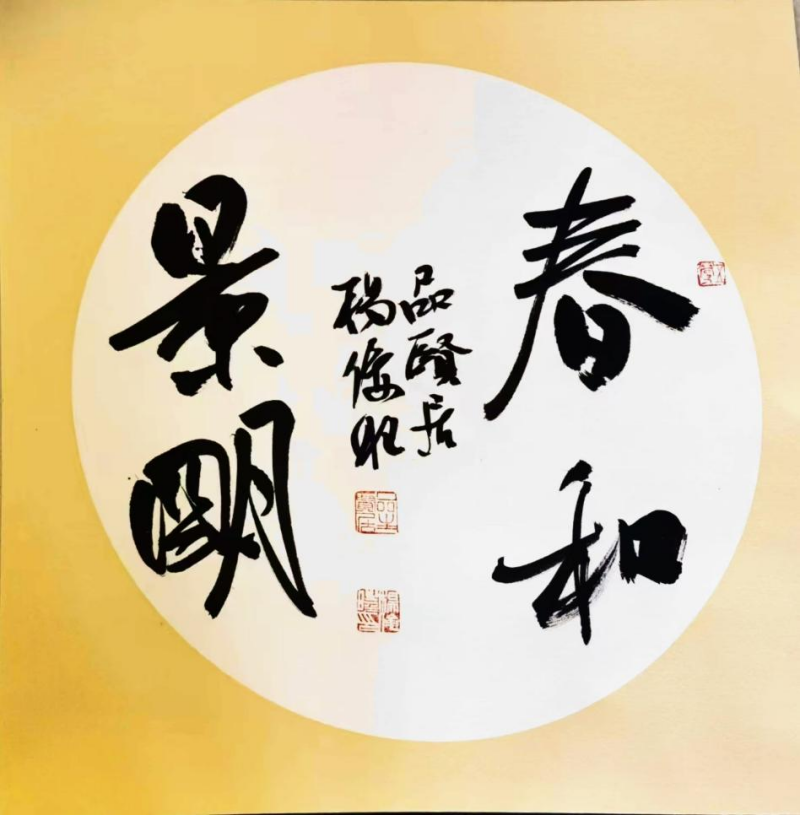 春和
景明
品賢居
楊